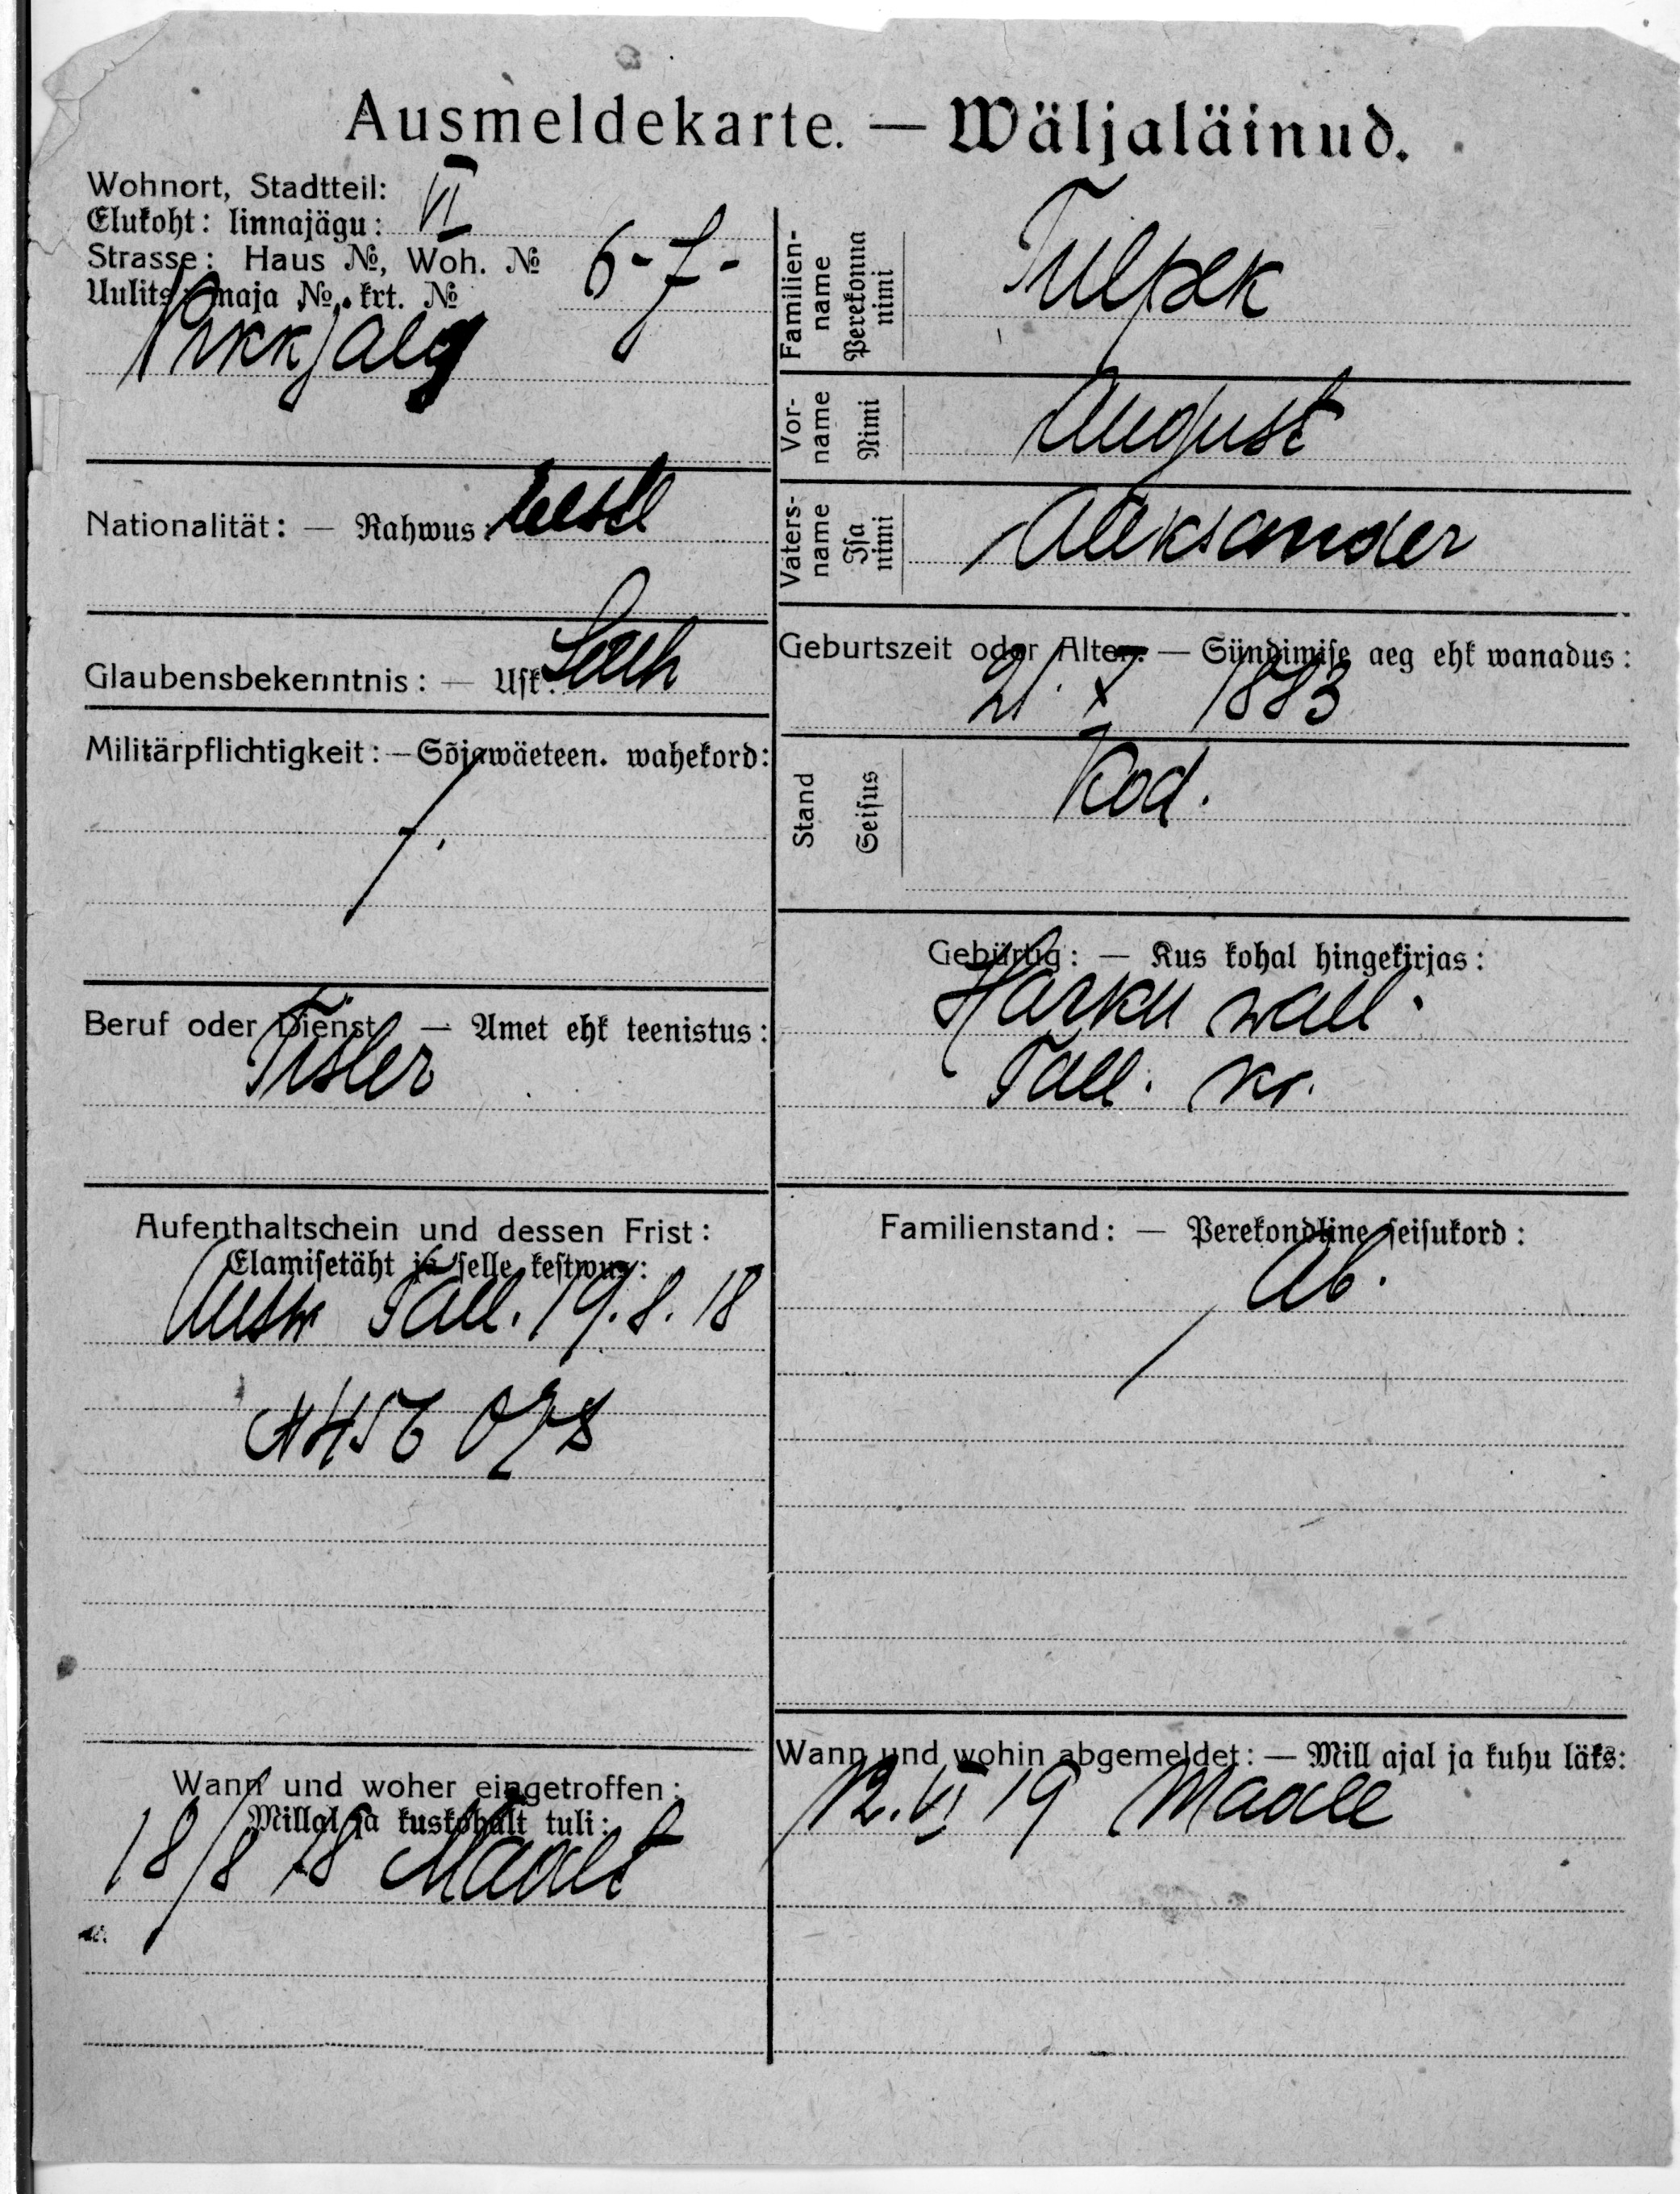 Ausmeldekarte. — Wäljaläinud.
Wohnort, Stadtteil:
Elukoht: linnajägu: VI
Strasse: Haus №, Woh. № 6-7-
Uulits: maja №, krt. №
Pikkjalg
Nationalität: — Rahwus: Eesti
Glaubensbekenntnis: — Usk: Luth
Militärpflichtigkeit: — Sõjawäeteen. wahekord:
Beruf oder Dienst — Amet ehk teenistus:
Tisler
Aufenthaltschein und dessen Frist:
Elamisetäht ja selle kestwus:
Tall. 19.8.18
Wann und woher eingetroffen:
Millal ja kuskohalt tuli:
18/8 18 Maalt
Familienname Perekonna nimi Tulpek
Vorname Nimi August
Vatersname Isa nimi Aleksander
Geburtszeit oder Alter: — Sündimise aeg ehk wanadus:
21. X 1883
Stand Seisus Kod.
Gebürtig: — Kus kohal hingekirjas:
Harku wall.
Tall. kr.
Familienstand: — Perekondline seisukord:
Ab.
Wann und wohin abgemeldet: — Mill ajal ja kuhu läks:
12. VI 19 Maale